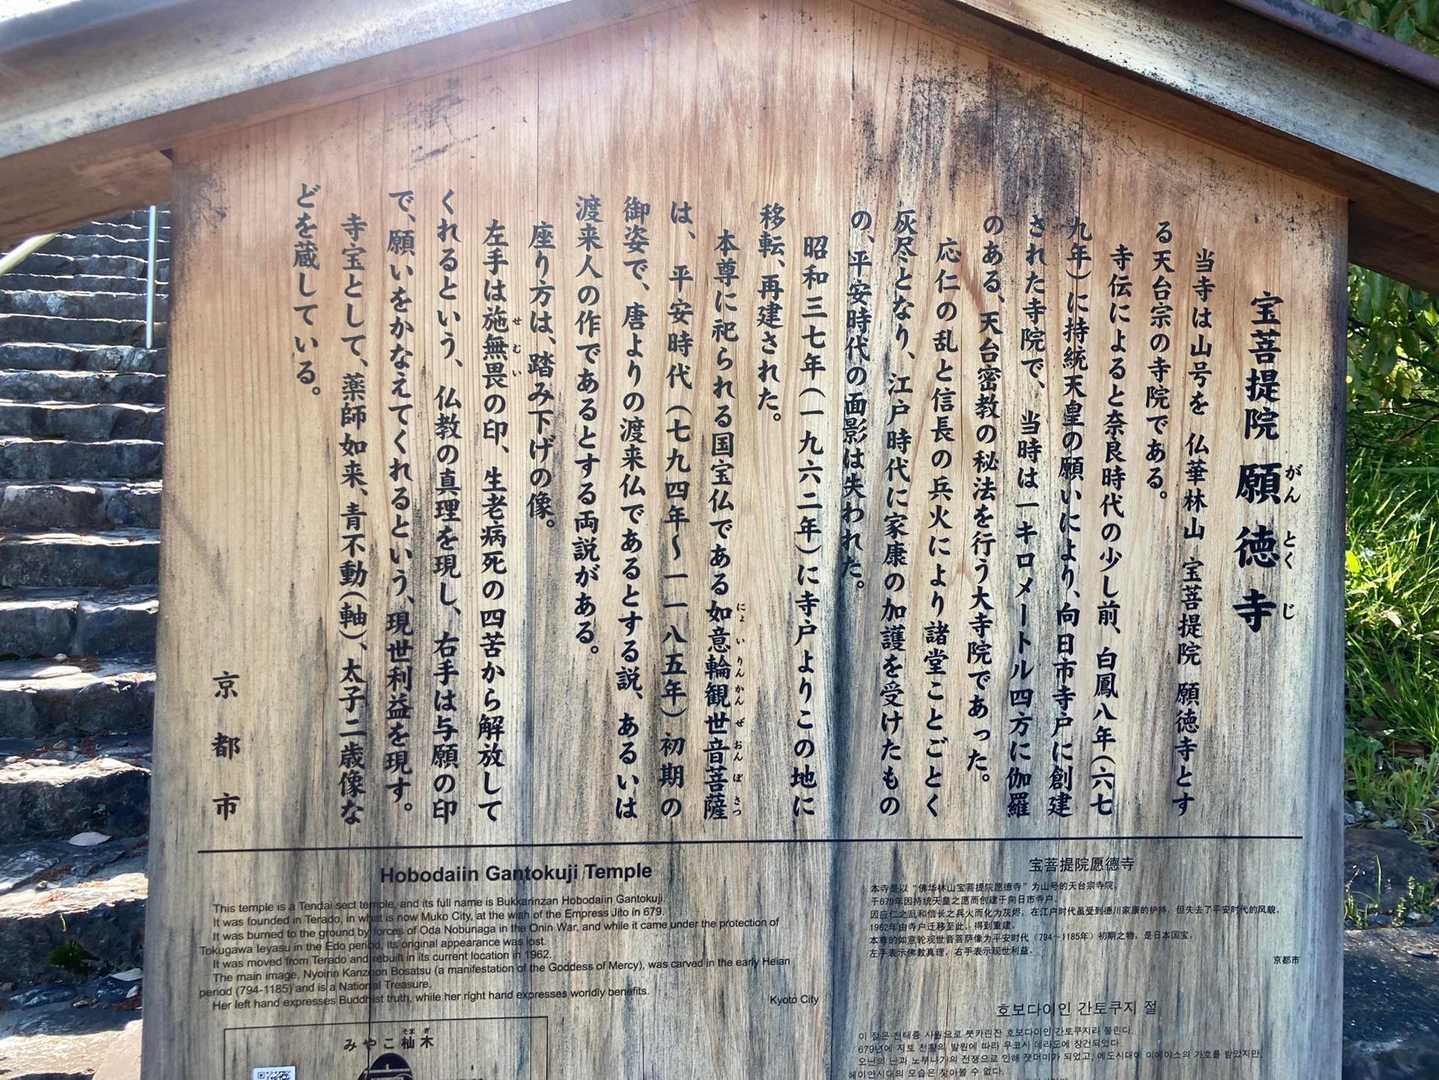 宝菩提院 願徳寺
がん とく じ
当寺は山号を 仏華林山 宝菩提院 願徳寺とす
る天台宗の寺院である。
寺伝によると奈良時代の少し前、白鳳八年(六七
九年)に持統天皇の願いにより、向日市寺戸に創建
された寺院で、当時は一キロメートル四方に伽羅
のある、天台密教の秘法を行う大寺院であった。
応仁の乱と信長の兵火により諸堂ことごとく
灰尽となり、江戸時代に家康の加護を受けたもの
の、平安時代の面影は失われた。
昭和三七年(一九六二年)に寺戸よりこの地に
移転、再建された。
本尊に祀られる国宝仏である如意輪観世音菩薩
にょ い りん かん ぜ おん ぼ さつ
は、平安時代(七九四年〜一一八五年)初期の
御姿で、唐よりの渡来仏であるとする説、あるいは
渡来人の作であるとする両説がある。
座り方は、踏み下げの像。
左手は施無畏の印、生老病死の四苦から解放して
せ む い
くれるという、仏教の真理を現し、右手は与願の印
で、願いをかなえてくれるという、現世利益を現す。
寺宝として、薬師如来、青不動(軸)、太子二歳像な
どを蔵している。
京都市
Hobodaiin Gantokuji Temple
This temple is a Tendai sect temple, and its full name is Bukkarinzan Hobodaiin Gantokuji.
It was founded in Terado, in what is now Muko City, at the wish of the Empress Jito in 679.
It was burned to the ground by forces of Oda Nobunaga in the Onin War, and while it came under the protection of
Tokugawa Ieyasu in the Edo period, its original appearance was lost.
It was moved from Terado and rebuilt in its current location in 1962.
The main image, Nyoirin Kanzeon Bosatsu (a manifestation of the Goddess of Mercy), was carved in the early Heian
period (794-1185) and is a National Treasure.
Her left hand expresses Buddhist truth, while her right hand expresses worldly benefits.
Kyoto City
宝菩提院愿德寺
本寺是以“佛华林山宝菩提院愿德寺”为山号的天台宗寺院。
于679年因持统天皇之愿而创建于向日市寺户。
因应仁之乱和信长之兵火而化为灰烬，在江户时代虽受到德川家康的护持，但失去了平安时代的风貌。
1962年由寺户迁移至此，得到重建。
本尊的如意轮观世音菩萨像为平安时代（794～1185年）初期之物，是日本国宝。
左手表示佛教真理，右手表示现世利益。
京都市
호보다이인 간토쿠지 절
이 절은 천태종 사원으로 붓카린잔 호보다이인 간토쿠지라 불린다.
679년에 지토 천황의 발원에 따라 무코시 데라도에 창건되었다.
오닌의 난과 노부나가의 전쟁으로 인해 잿더미가 되었고, 에도시대에 이에야스의 가호를 받았지만,
헤이안시대의 모습은 찾아볼 수 없다.
みやこ杣木
そま ぎ